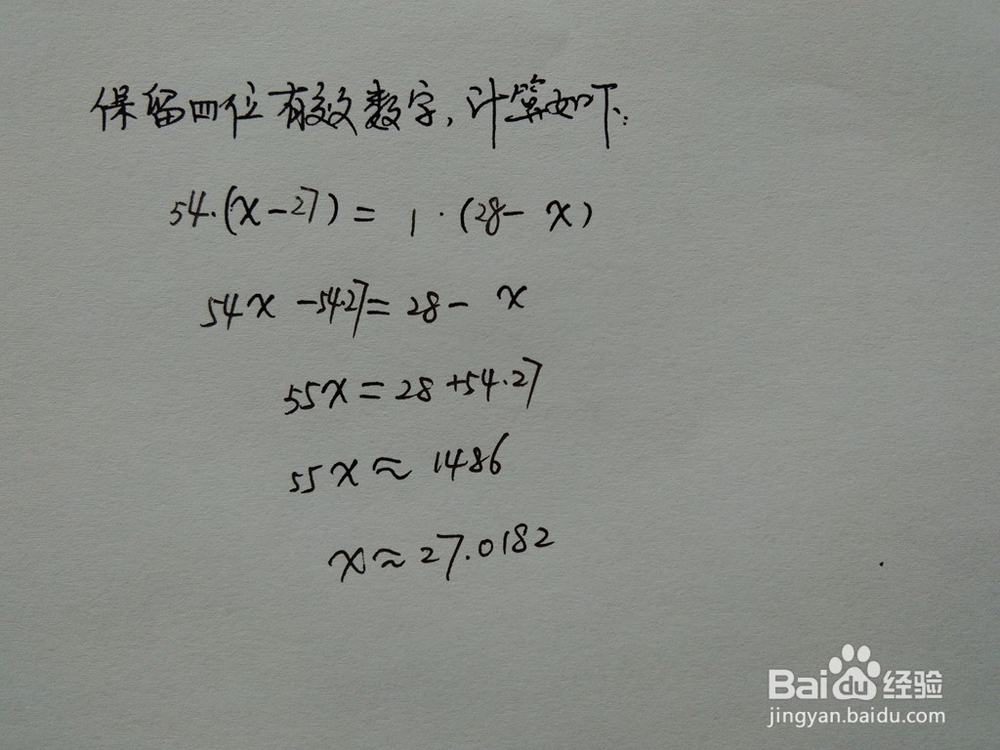 保留四位有效数字,计算如下:
54·(x-27)= 1·(28- x)
54x -54·27= 28- x
55x = 28+54·27
55x ≈ 1486
x ≈ 27.0182
Baidu经验
jingyan.baidu.com